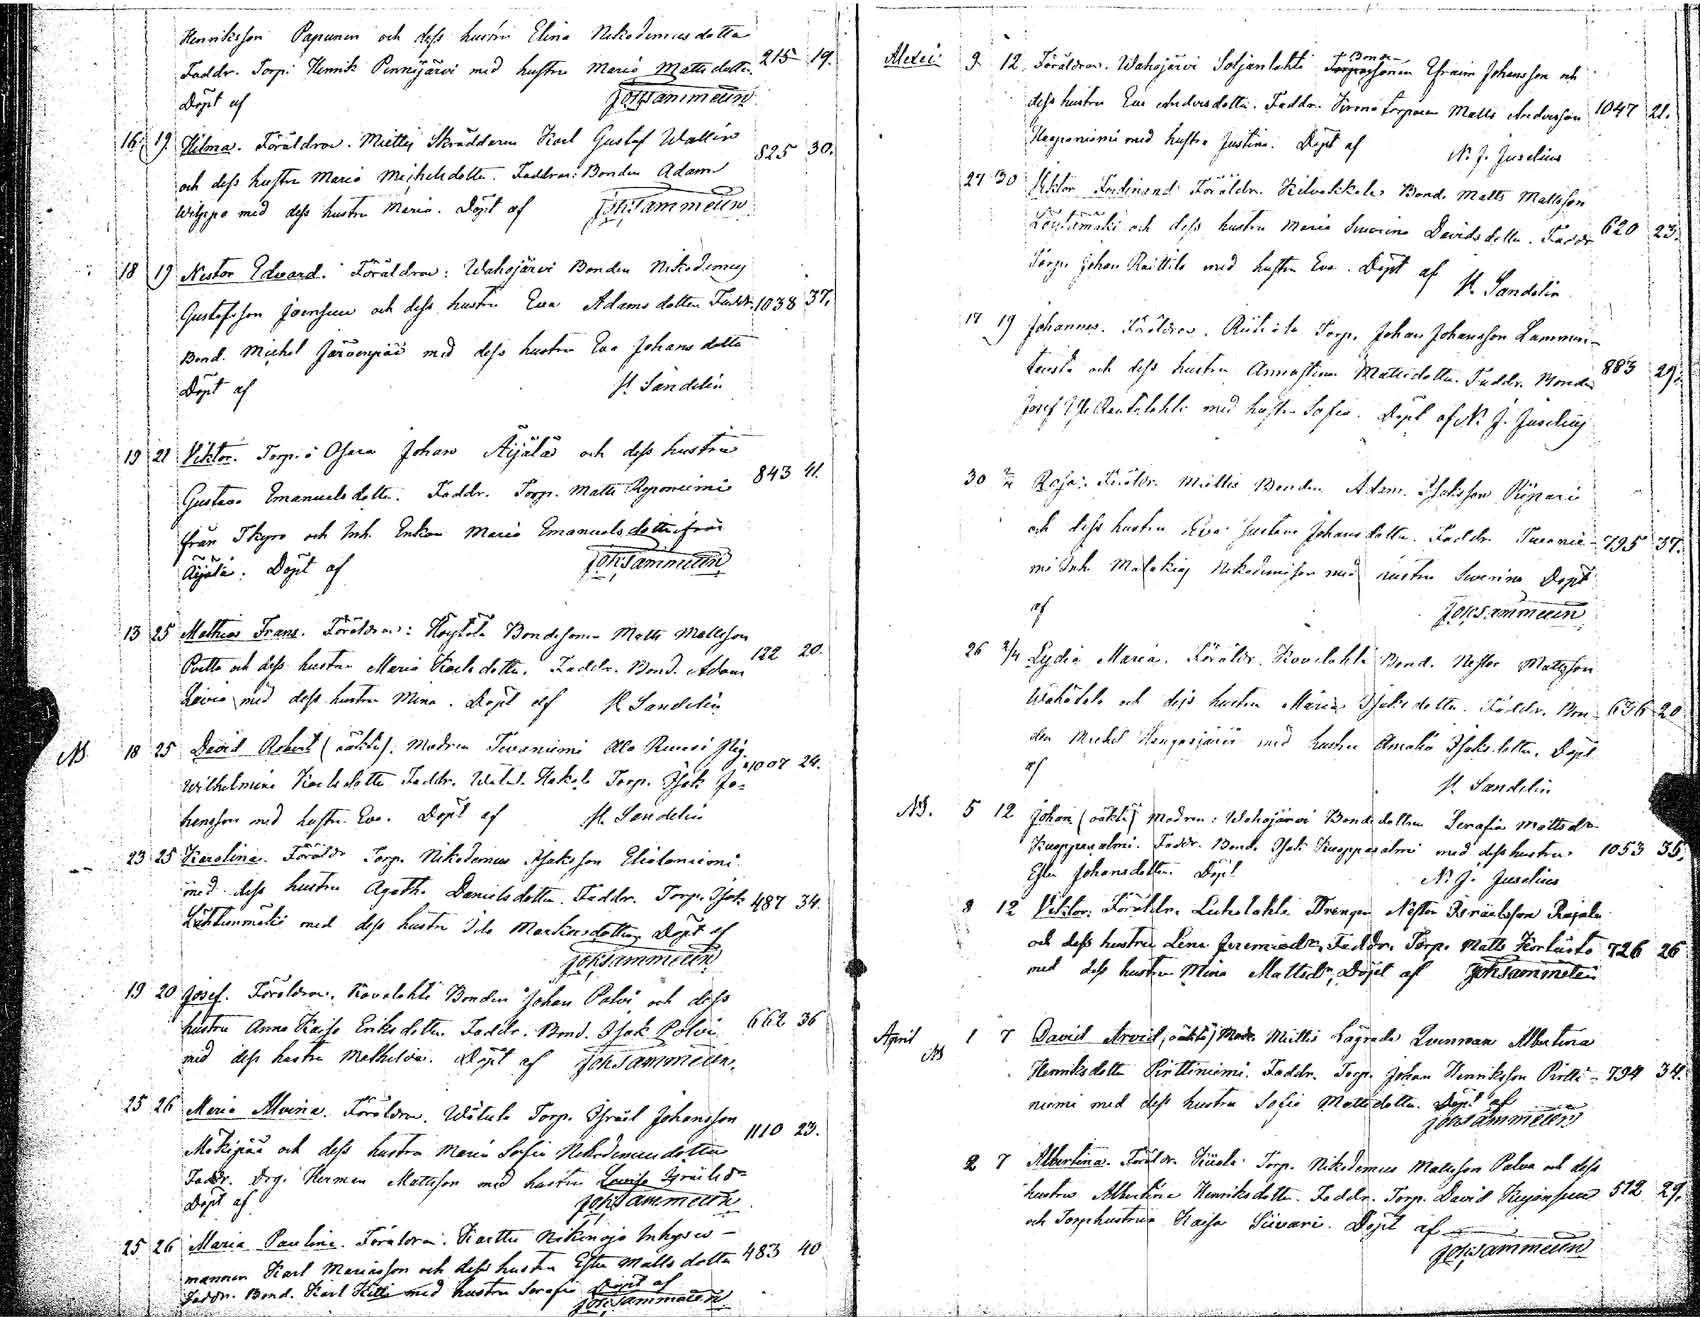 Henriksson Papunen och dess hustru Elina Nikodemusdotter
Faddr. Torp. Henrik Pinnijärvi med hustru Maria Mattsdotter. 215 19.
Döpt af Joh Sammelin
16 19 Hilma. Föräldrar. Miettis Skräddaren Karl Gustaf Wallin
och dess hustru Maria Michelsdotter. Faddrar: Bonden Adam 825 30.
med dess hustru Maria. Döpt af Joh Sammelin
18 19 Nestor Edvard. Föräldrar: Wahojärvi Bonden Nikodemus
Gustafsson Joensuu och dess hustru Eva Adamsdotter Faddr. 1038 37.
Bond. Michel Järvenpää med dess hustru Eva Johansdotter
Döpt af K. Sandelin
19 21 Viktor. Torp. Osara Johan Äijälä och dess hustru
Gustava Emanuelsdotter. Faddr. Torp. Matts Reponiemi 843 41.
från Ikyro och Inh. Enkan Maria Emanuelsdotter från
Äijälä. Döpt af Joh Sammelin
13 25 Mathias Frans. Föräldrar: Höytölä Bondesonen Matts Mattsson
och dess hustru Maria Karlsdotter. Faddr. Bond. Adam 122 20.
med dess hustru Mina. Döpt af K. Sandelin
NB 18 25 David Robert (oäkta). Modren Turaniemi Pig.
Wilhelmina Karlsdotter Faddr. Hakala Torp. Isak Jo- 1007 24.
hansson med hustru Eva. Döpt af K. Sandelin
23 25 Karolina. Föräldr. Torp. Nikodemus Isaksson Elialaniemi
med dess hustru Agatha Danielsdotter. Faddr. Torp. Isak 487 34.
med dess hustru Ida Martinsdotter, Döpt af
Joh Sammelin
19 20 Josef. Föräldrar. Kovelahti Bonden Johan Palvi och dess
hustru Anna Kaisa Eriksdotter Faddr. Bond. Isak Palvi 662 36
med dess hustru Mathilda. Döpt af Joh Sammelin.
25 26 Maria Alvina. Föräldrar. Wätula Torp. Israel Johansson
Mäkipää och dess hustru Maria Sofia Nikodemusdotter 1110 23.
Faddr. Drg. Herman Mattsson med hustru Lovisa Israelsd-
Döpt af Joh Sammelin
25 26 Maria Paulina. Föräldrar. Karttu Nikinoja Inhyses-
mannen Karl Mariasson och dess hustru Ester Mattsdotter 483 40
Faddr. Bond. Karl Killi med hustru Serafia Döpt af
Joh Sammelin
Alexei 9 12 Föräldrar. Wahojärvi Soljanlahti Bonde Efraim Johansson och
dess hustru Eva Andersdotter. Faddr. torparen Matts Andersson 1047 21.
Haapaniemi med hustru Justina. Döpt af N. J. Juselius
27 30 Viktor Ferdinand Föräldr. Kilvakkala Bond. Matts Mattsson
Löytömäki och dess hustru Maria Severina Davidsdotter. Faddr. 620 23.
Torp. Johan Raittila med hustru Eva. Döpt af
K. Sandelin
17 19 Johannes. Föräldrar. Torp. Johan Johansson Lammin-
och dess hustru Annastina Mattsdotter. Faddr. Bonden 883 29.
Josef Rautalahti med hustru Sofia. Döpt af N. J. Juselius
30 Rosa. Föräldr. Miettis Bonden Adam Isaksson
och dess hustru Eva Gustava Johansdotter. Faddr. Turanie- 795 37.
mi Inh. Malakias Nikodemusson med hustru Severina Döpt
af Joh Sammelin
26 2/4 Lydia Maria. Föräldr. Kovelahti Bond. Nestor Mattsson
och dess hustru Maria Isaksdotter. Faddr. Bon- 636 20
den Michel Hangasjärvi med hustru Amalia Isaksdotter. Döpt
af K. Sandelin
NB. 5 12 Johan (oäkta) Modren: Wahojärvi Bondedottren Serafia Mattsdr.
Kuoppasalmi. Faddr. Bond. Isak Kuoppasalmi med dess hustru 1053 35.
Ester Johansdotter. Döpt N. J. Juselius
8 12 Viktor. Föräldr. Luhalahti Drengen Nestor Israelsson Rajala
och dess hustru Lena Jeremiedr. Faddr. Torp. Matts Korhuste 726 26
med dess hustru Mina Mattsdr. Döpt af Joh Sammelin
April NB 1 7 David Arvid, (oäkta) Modr. Miettis Lägrade Qvinnan Albertina
Henriksdotter Pirttiniemi. Faddr. Torp. Johan Henriksson Pirtti- 794 34.
niemi med dess hustru Sofia Mattsdotter. Döpt af
Joh Sammelin
2 7 Albertina. Föräldr. Torp. Nikodemus Mattsson Palva och dess
hustru Albertina Henriksdotter. Faddr. Torp. David Kujansuu 512 29.
och Torphustrun Kaisa Siivari. Döpt af
Joh Sammelin